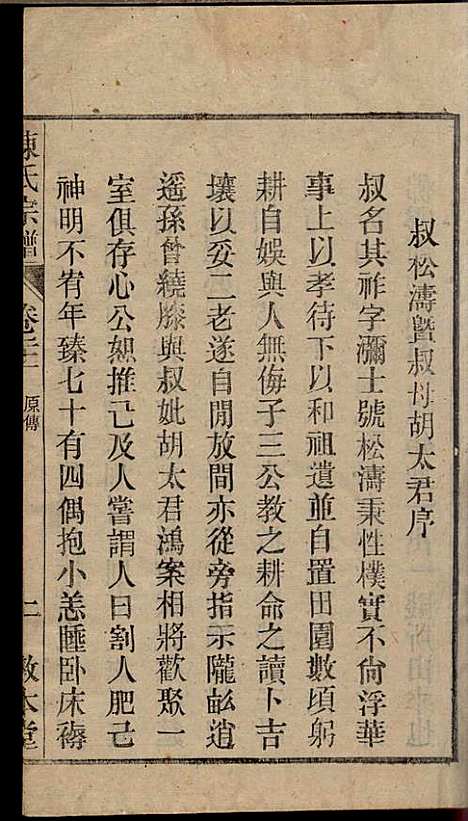 叔松濤暨叔母胡太君序
叔名其祚字瀰士號松濤秉性樸實不尙浮華
事上以孝待下以和祖遺並自置田園數頃躬
耕自娛與人無侮子三公教之耕命之讀卜吉
壤以妥二老遂自閒放間亦從旁指示隴畝逍
遥孫曾繞膝與叔妣胡太君鴻案相將歡聚一
室俱存心公恕推己及人嘗謂人曰割人肥己
神明不宥年臻七十有四偶抱小恙睡卧床褥
陳氏宗譜
卷三
原傳
二
敦本堂